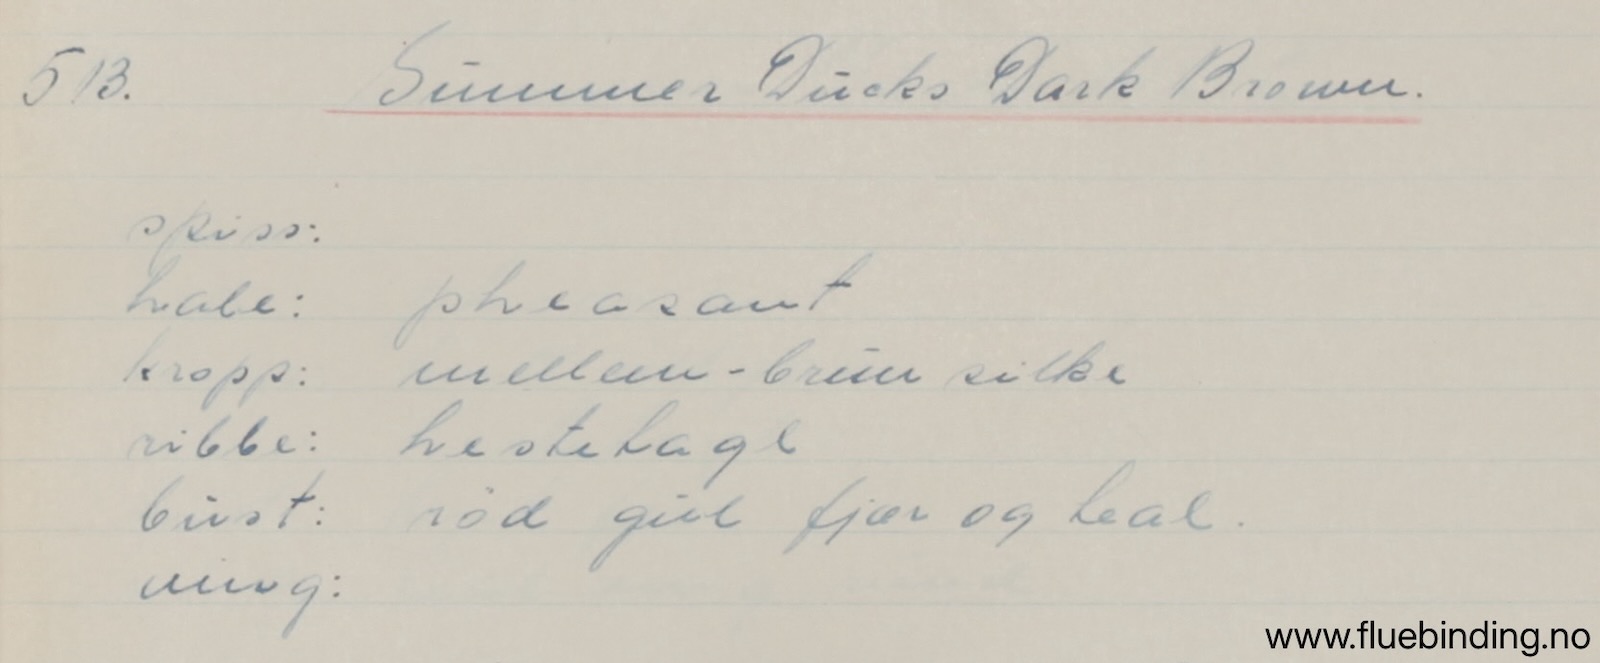 513. Summer Ducks Dark Brown.
spiss:
hale: pheasant
kropp: mellem-brun silke
ribbe: hestetagl
bust: röd gul fjær og teal.
ving:
www.fluebinding.no